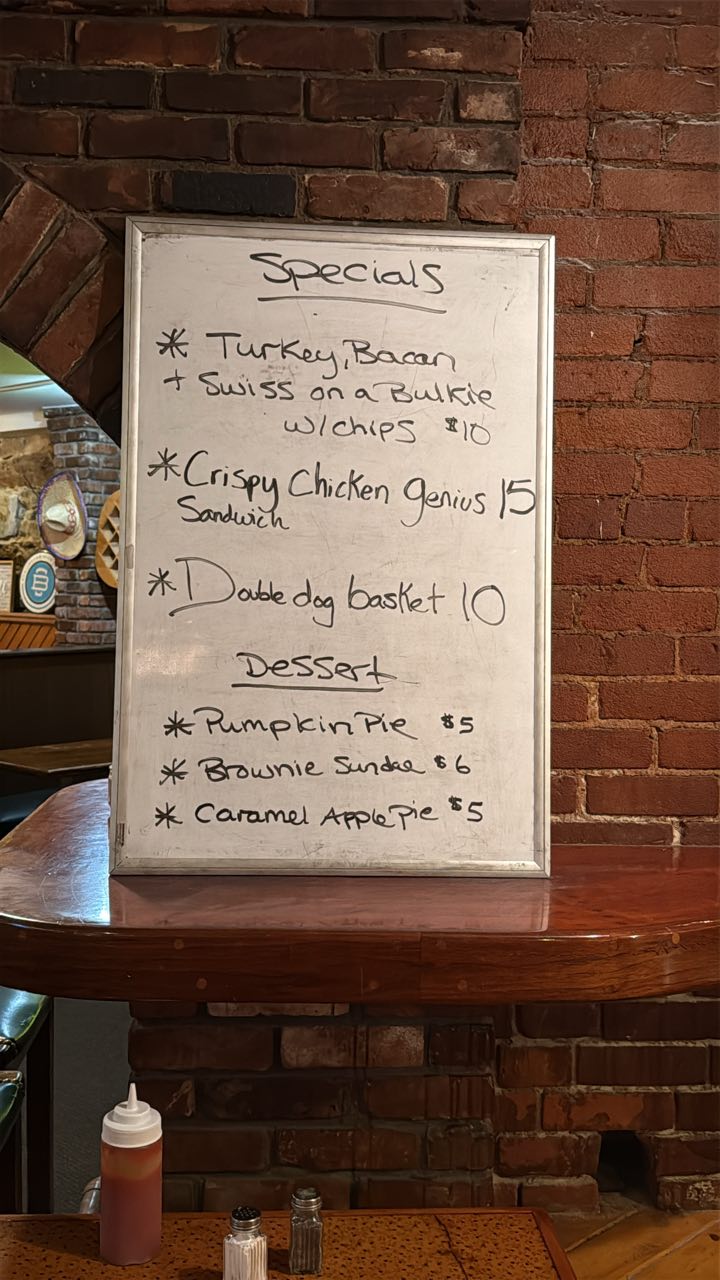 Specials
* Turkey, Bacan
+ Swiss on a Bulkie
w/chips $10
* Crispy Chicken Genius 15
Sandwich
* Double dog basket 10
Dessert
* Pumpkin Pie $5
* Brownie Sundae $6
* Caramel Apple Pie $5